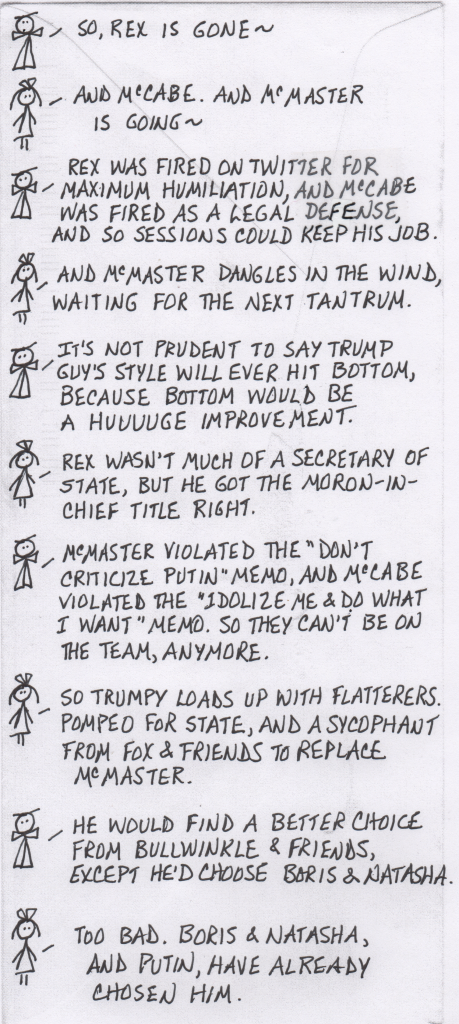 SO, REX IS GONE~
AND McCABE. AND McMASTER
IS GOING~
REX WAS FIRED ON TWITTER FOR
MAXIMUM HUMILIATION, AND McCABE
WAS FIRED AS A LEGAL DEFENSE,
AND SO SESSIONS COULD KEEP HIS JOB.
AND McMASTER DANGLES IN THE WIND,
WAITING FOR THE NEXT TANTRUM.
IT'S NOT PRUDENT TO SAY TRUMP
GUY'S STYLE WILL EVER HIT BOTTOM,
BECAUSE BOTTOM WOULD BE
A HUUUUGE IMPROVEMENT.
REX WASN'T MUCH OF A SECRETARY OF
STATE, BUT HE GOT THE MORON-IN-
CHIEF TITLE RIGHT.
McMASTER VIOLATED THE "DON'T
CRITICIZE PUTIN" MEMO, AND McCABE
VIOLATED THE "IDOLIZE ME & DO WHAT
I WANT" MEMO. SO THEY CAN'T BE ON
THE TEAM, ANYMORE.
SO TRUMPY LOADS UP WITH FLATTERERS.
POMPEO FOR STATE, AND A SYCOPHANT
FROM FOX & FRIENDS TO REPLACE
McMASTER.
HE WOULD FIND A BETTER CHOICE
FROM BULLWINKLE & FRIENDS,
EXCEPT HE'D CHOOSE BORIS & NATASHA.
TOO BAD. BORIS & NATASHA,
AND PUTIN, HAVE ALREADY
CHOSEN HIM.